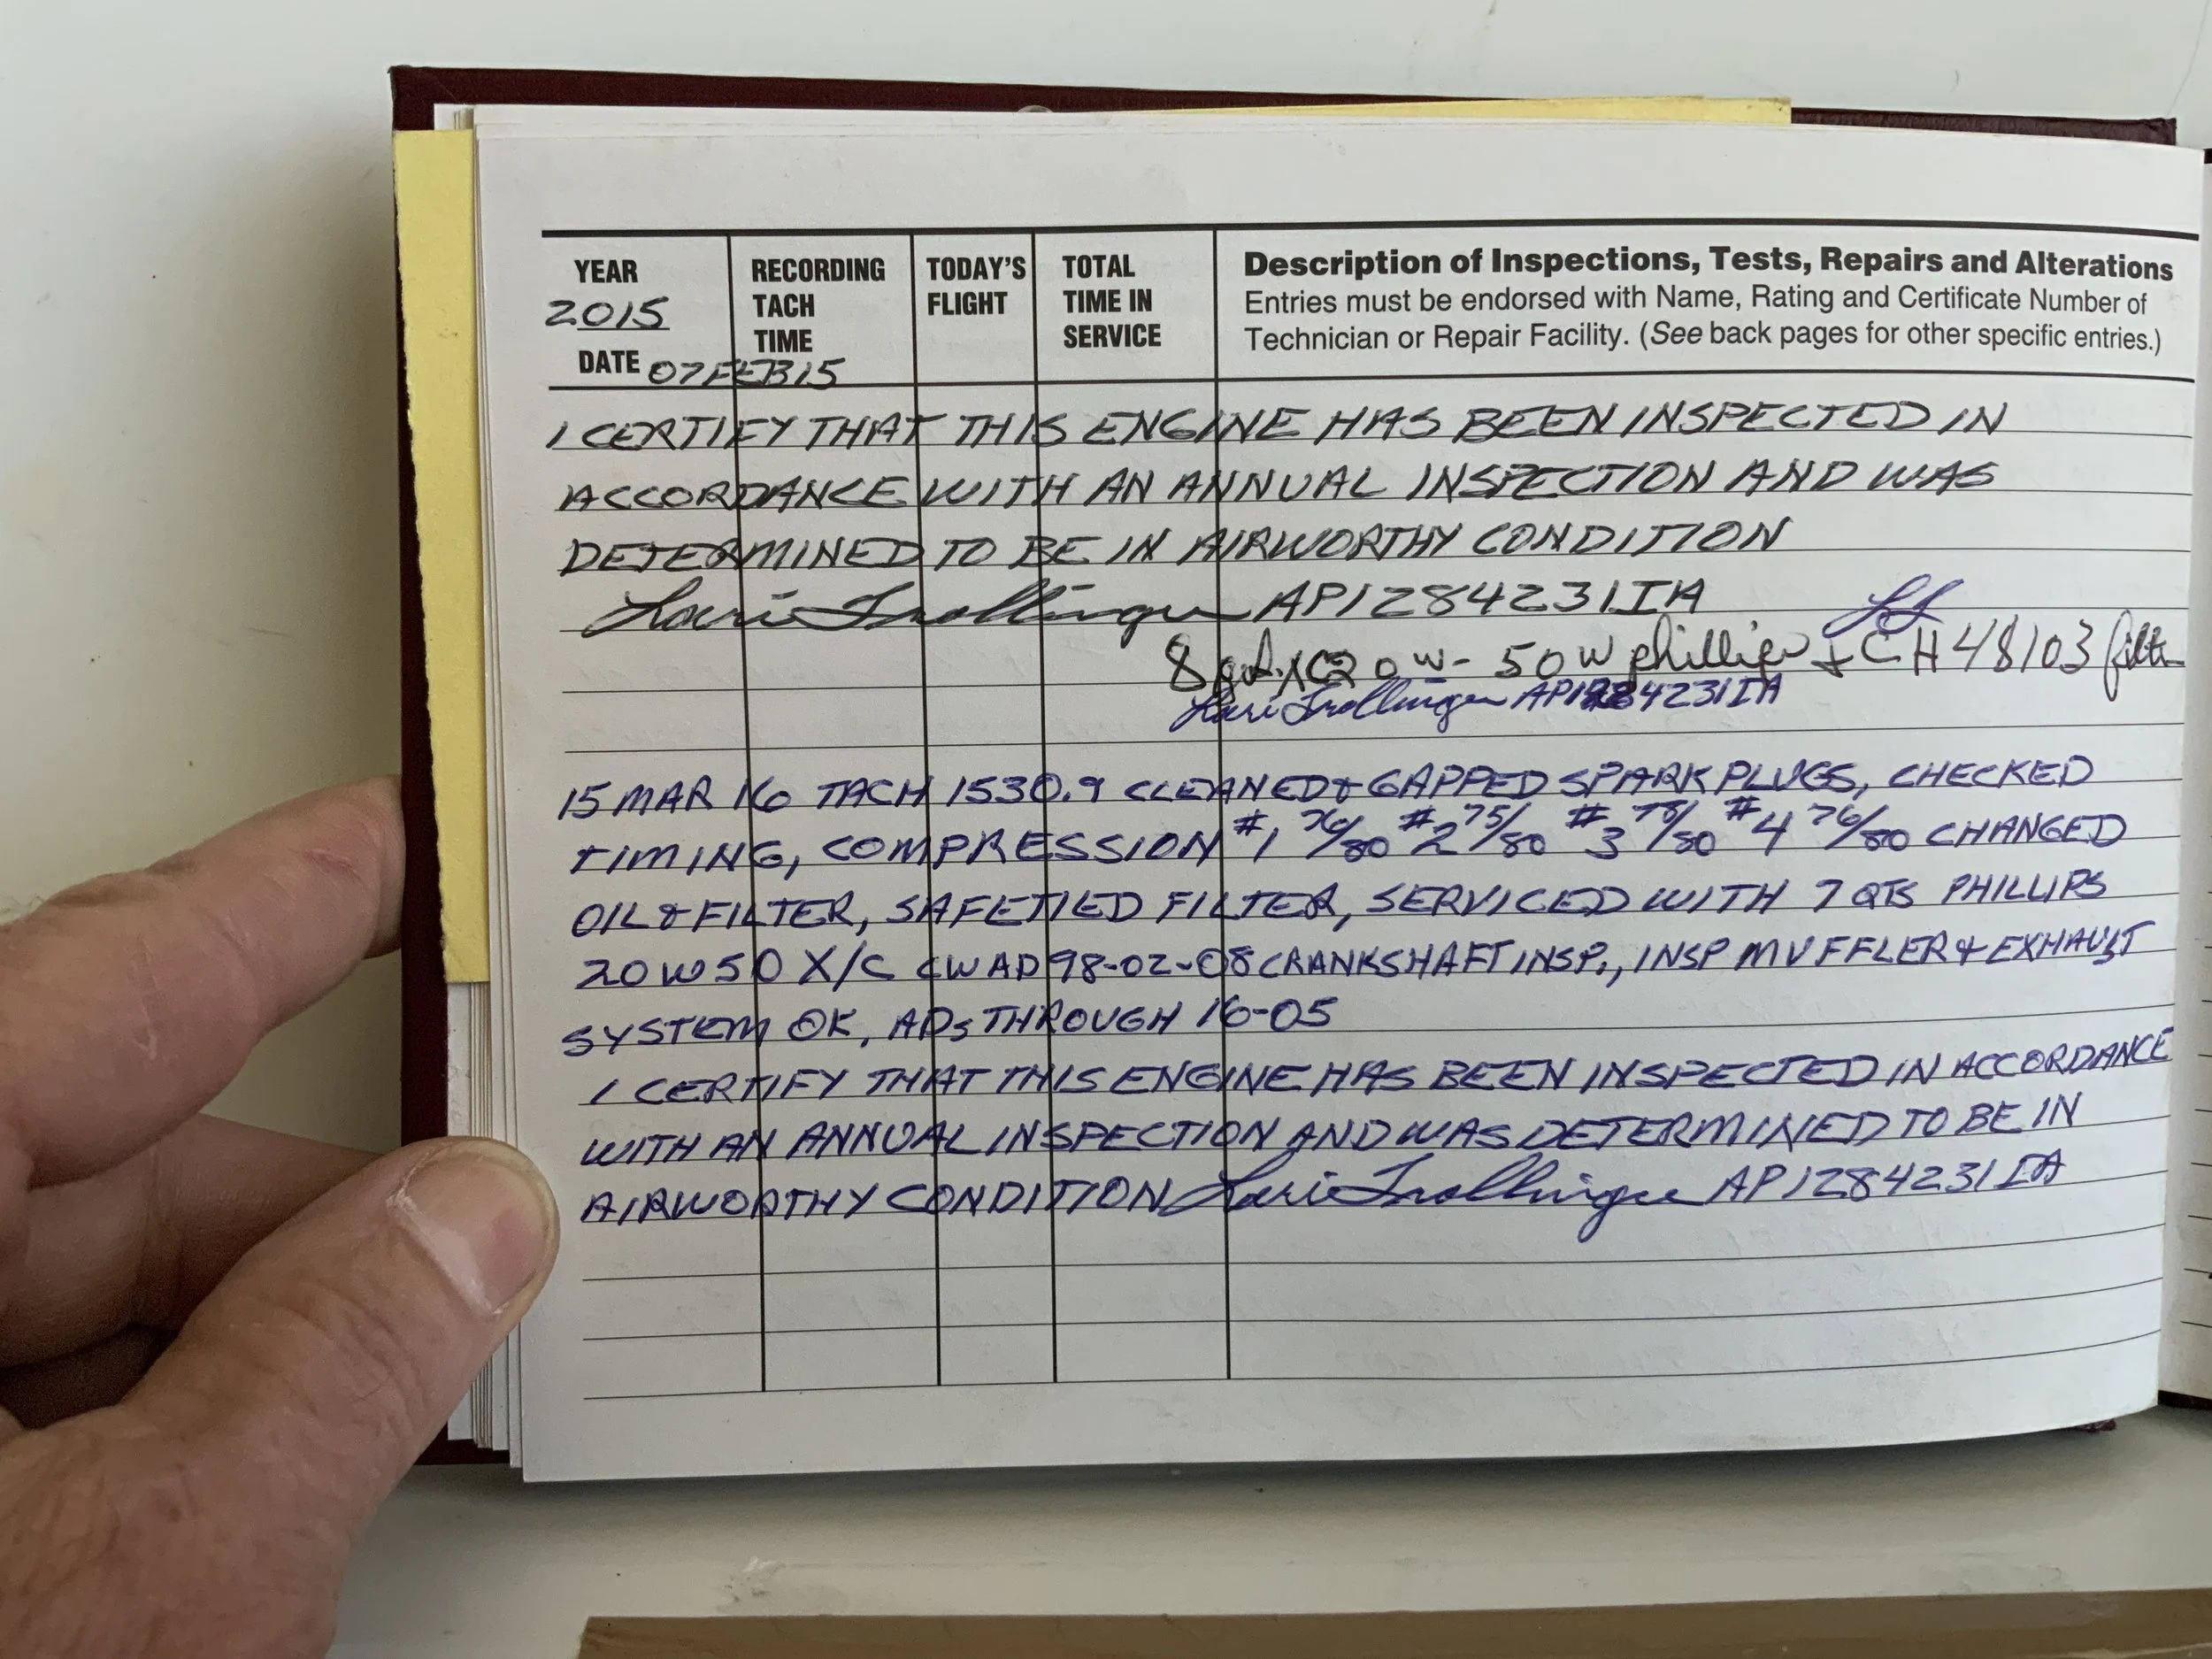 YEAR RECORDING TODAY'S TOTAL Description of Inspections, Tests, Repairs and Alterations
2015 TACH FLIGHT TIME IN Entries must be endorsed with Name, Rating and Certificate Number of
TIME SERVICE Technician or Repair Facility. (See back pages for other specific entries.)
DATE 07FEB15
I CERTIFY THAT THIS ENGINE HAS BEEN INSPECTED IN
ACCORDANCE WITH AN ANNUAL INSPECTION AND WAS
DETERMINED TO BE IN AIRWORTHY CONDITION
Lori Trollinger AP1284231IA
8 qt. XC20W-50W phillips + CH48103 filter
Lori Trollinger AP1284231IA
15 MAR 16 TACH 1530.9 CLEANED & GAPPED SPARK PLUGS, CHECKED
TIMING, COMPRESSION #1 76/80 #2 75/80 #3 78/80 #4 76/80 CHANGED
OIL & FILTER, SAFETIED FILTER, SERVICED WITH 7 QTS PHILLIPS
20W50 X/C CW AD 98-02-08 CRANKSHAFT INSP., INSP MUFFLER & EXHAUST
SYSTEM OK, ADs THROUGH 16-05
I CERTIFY THAT THIS ENGINE HAS BEEN INSPECTED IN ACCORDANCE
WITH AN ANNUAL INSPECTION AND WAS DETERMINED TO BE IN
AIRWORTHY CONDITION Lori Trollinger AP1284231IA